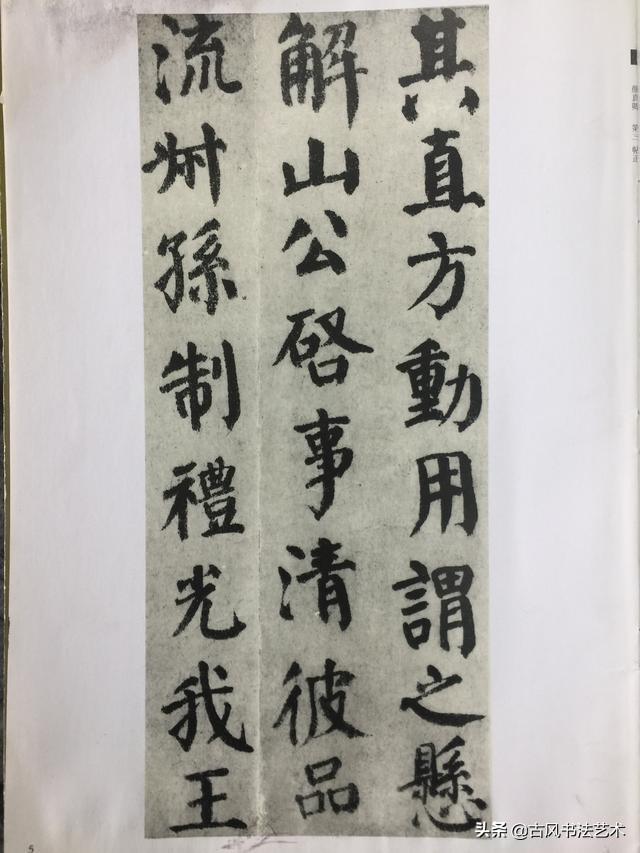 其直方動用謂之懸
解山公啓事清彼品
流叔孫制禮光我王
5
头条 @古风书法艺术